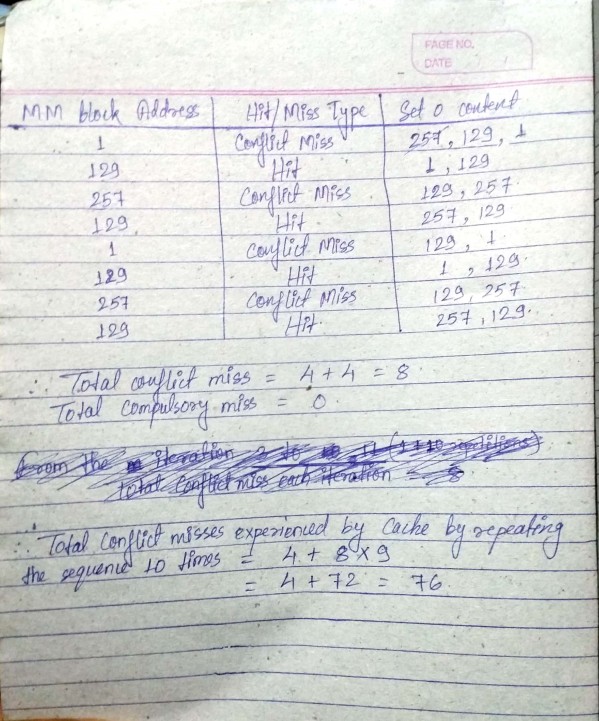 PAGE NO.
DATE / /
MM block Address | Hit/Miss Type | Set 0 content
1 | Conflict Miss | 257, 129, 1
129 | Hit | 1, 129
257 | Conflict Miss | 129, 257.
129 | Hit. | 257, 129
1 | Conflict Miss | 129, 1.
129 | Hit | 1, 129.
257 | Conflict Miss | 129, 257
129 | Hit. | 257, 129.
∴ Total conflict miss = 4 + 4 = 8.
Total compulsory miss = 0.
From the iteration 2 to 11 (1+10 repititions)
total conflict miss each iteration = 8
∴ Total conflict misses experienced by cache by repeating
the sequence 10 times = 4 + 8 × 9
= 4 + 72 = 76.